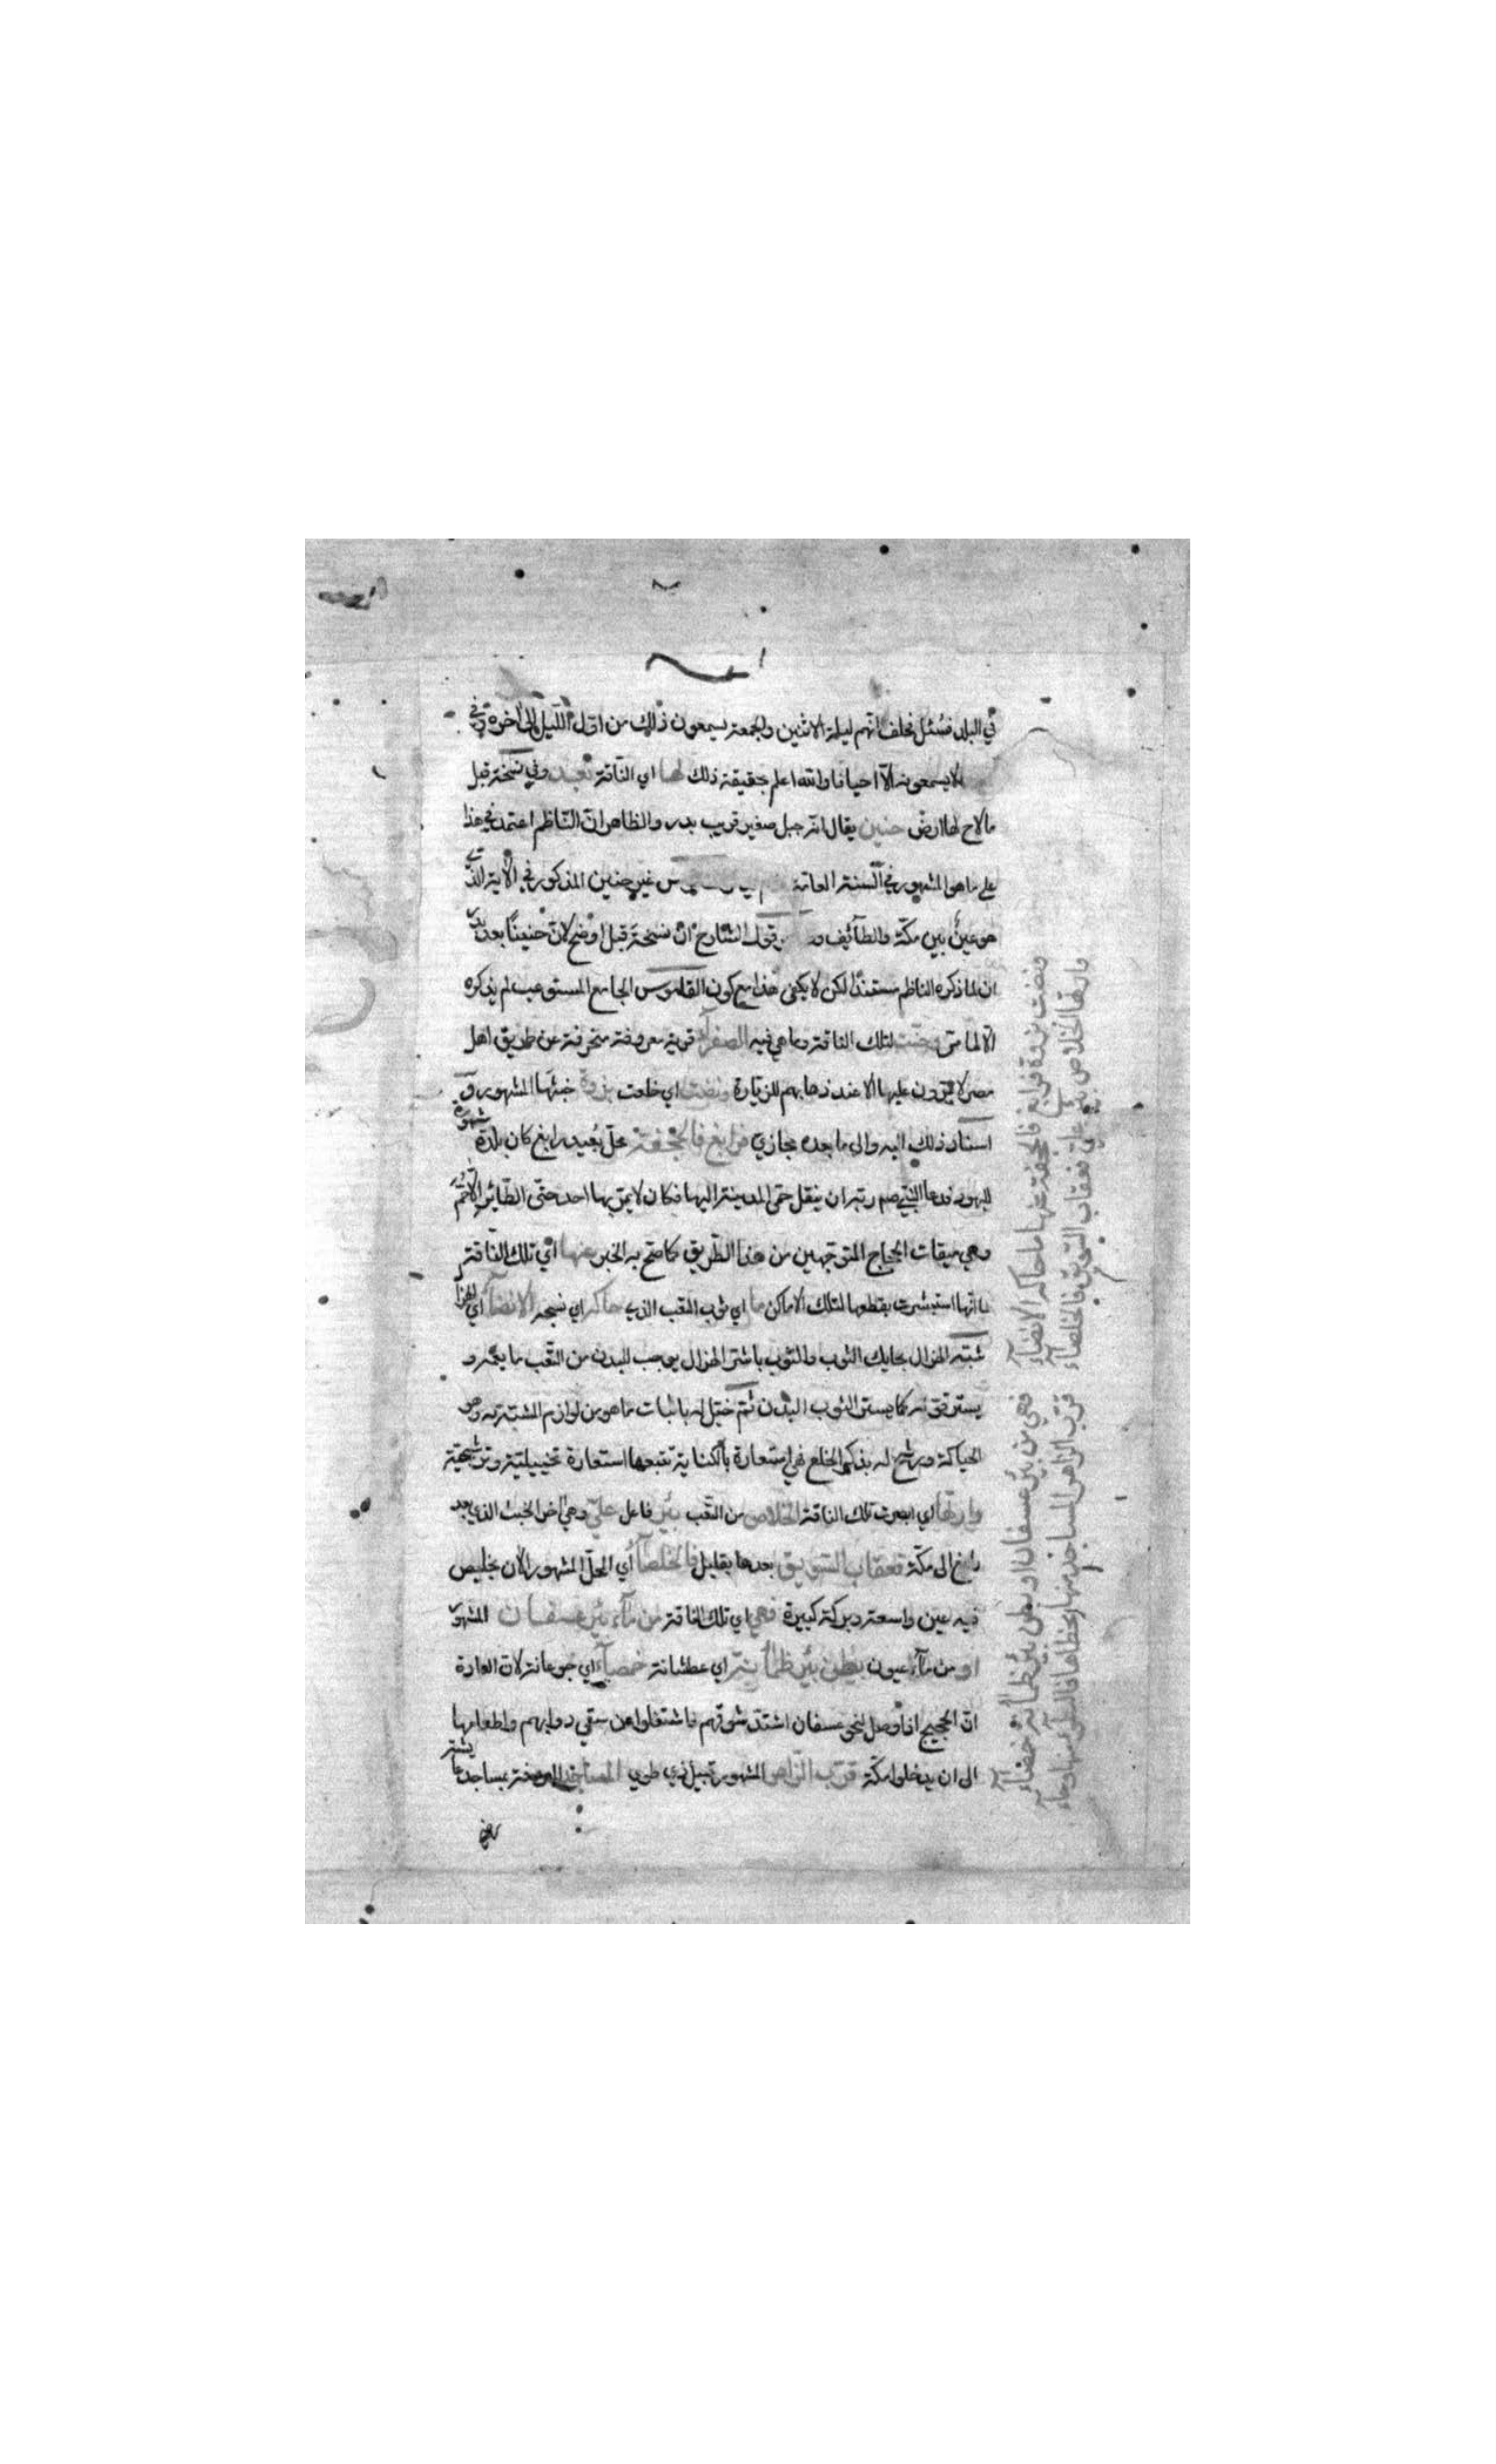 في البلد فسئل فحلف انهم ليلة الاثنين والجمعة يسمعون ذلك من اول الليل الى اخره وفي
لا يسمعونه الا احيانا والله اعلم بحقيقة ذلك لها اي الناقة بعد وفي نسخة قبل
ما لاح لها ارض حنين يقال انه جبل صغير قريب بدر والظاهر ان الناظم اعتمد في هذا
على ما هو المشهور في السنة العامة غير حنين المذكور في الآية الذي
هو عين بين مكة والطائف قول الشارح ان نسخة قبل اوضح لان حنينا بعد بدر
ان لما ذكره الناظم مستندا لكن لا يكفي هذا مع كون القاموس الجامع المستوعب لم يذكره
الا لما مر وحنت لتلك الناقة وما هي فيه الصفراء قرية معروفة منحرفة عن طريق اهل
مصر لا يمرون عليها الا عند ذهابهم للزيارة ونضت اي خلعت بزوة خبثها المشهور و
اسناد ذلك اليه والى ما بعده مجازي فرابغ فالجحفة محل بعيد رابغ كان بلدة مشهورة
لليهود فدعا النبي صم ربه ان ينقل حمى المدينة اليها فكان لا يمر بها احد حتى الطائر الا حم
وهي ميقات الحجاج المتوجهين من هذا الطريق كما صح به الخبر عنها اي تلك الناقة
لما انها استبشرت بقطعها لتلك الاماكن ما اي ثوب التعب الذي حاكه اي نسجه الانضاء اي الهزال
شبه الهزال بحايك الثوب والثوب باشر الهزال يوجب للبدن من التعب ما يعمه و
يستر قوته كما يستر الثوب البدن ثم خيل له باثبات ما هو من لوازم المشبه به وهو
الحياكة ورشح له بذكر الخلع فهي استعارة بالكناية تتبعها استعارة تخييلية وترشيحية
وارتها اي ابصرت تلك الناقة الخلاص من التعب بئر فاعل علي وهي اخر الخبث الذي بعد
رابغ الى مكة فعقاب السويق بعدها بقليل فالخلصاء اي المحل المشهور الان بخليص
فيه عين واسعة وبركة كبيرة فهي اي تلك الناقة من ماء بئر عسفان المشهور
او من ماء عيون بطن بئر ظمآنة اي عطشانة خمصاء اي جوعانة لان العادة
ان الحجيج اذا وصل لنحو عسفان اشتد شوقهم فاشتغلوا عن سقي دوابهم واطعامها
الى ان يدخلوا مكة قرب الزاهر المشهور قبيل ذي طوى المساجد المعروفة بمساجد عائشة
ونضت بزوة فرابغ فالجحفة عنها ما حاكه الانضاء
وارتها الخلاص بئر علي فعقاب السويق فالخلصاء
فهي من بئر عسفان او بطن بئر ظمآنة خمصاء
قرب الزاهر المساجد منها بخطاها فالبطؤ منها وحاء